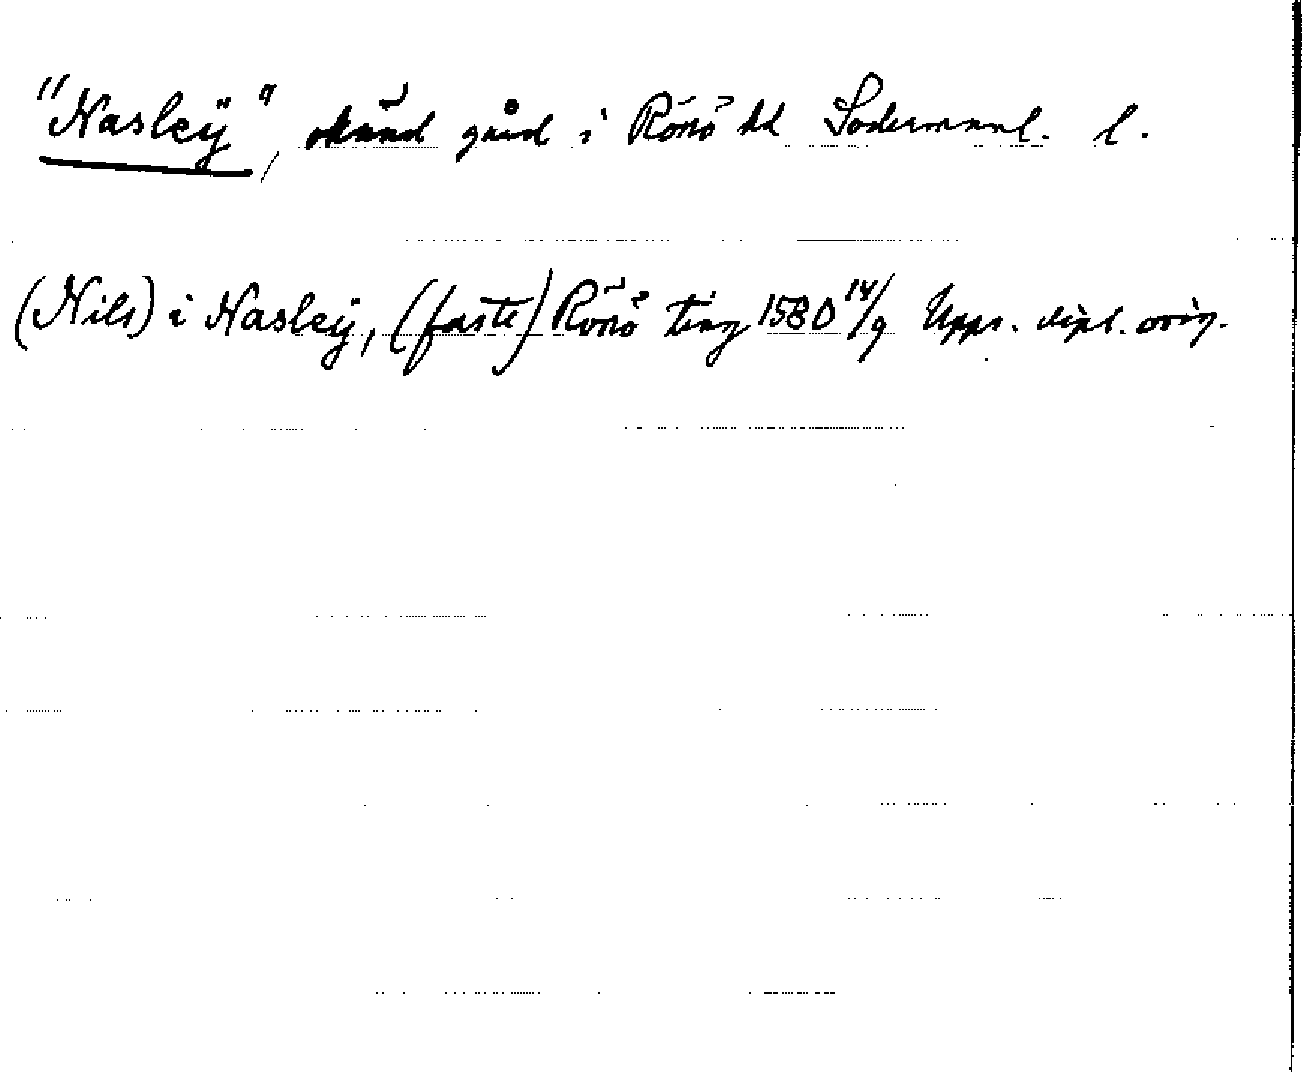 "Nasleÿ", okänd gård i Rönö hd Södermanl. l.
(Nils) i Nasleÿ, (faste) Rönö ting 1580 14/9 Upps. dipl. orig.